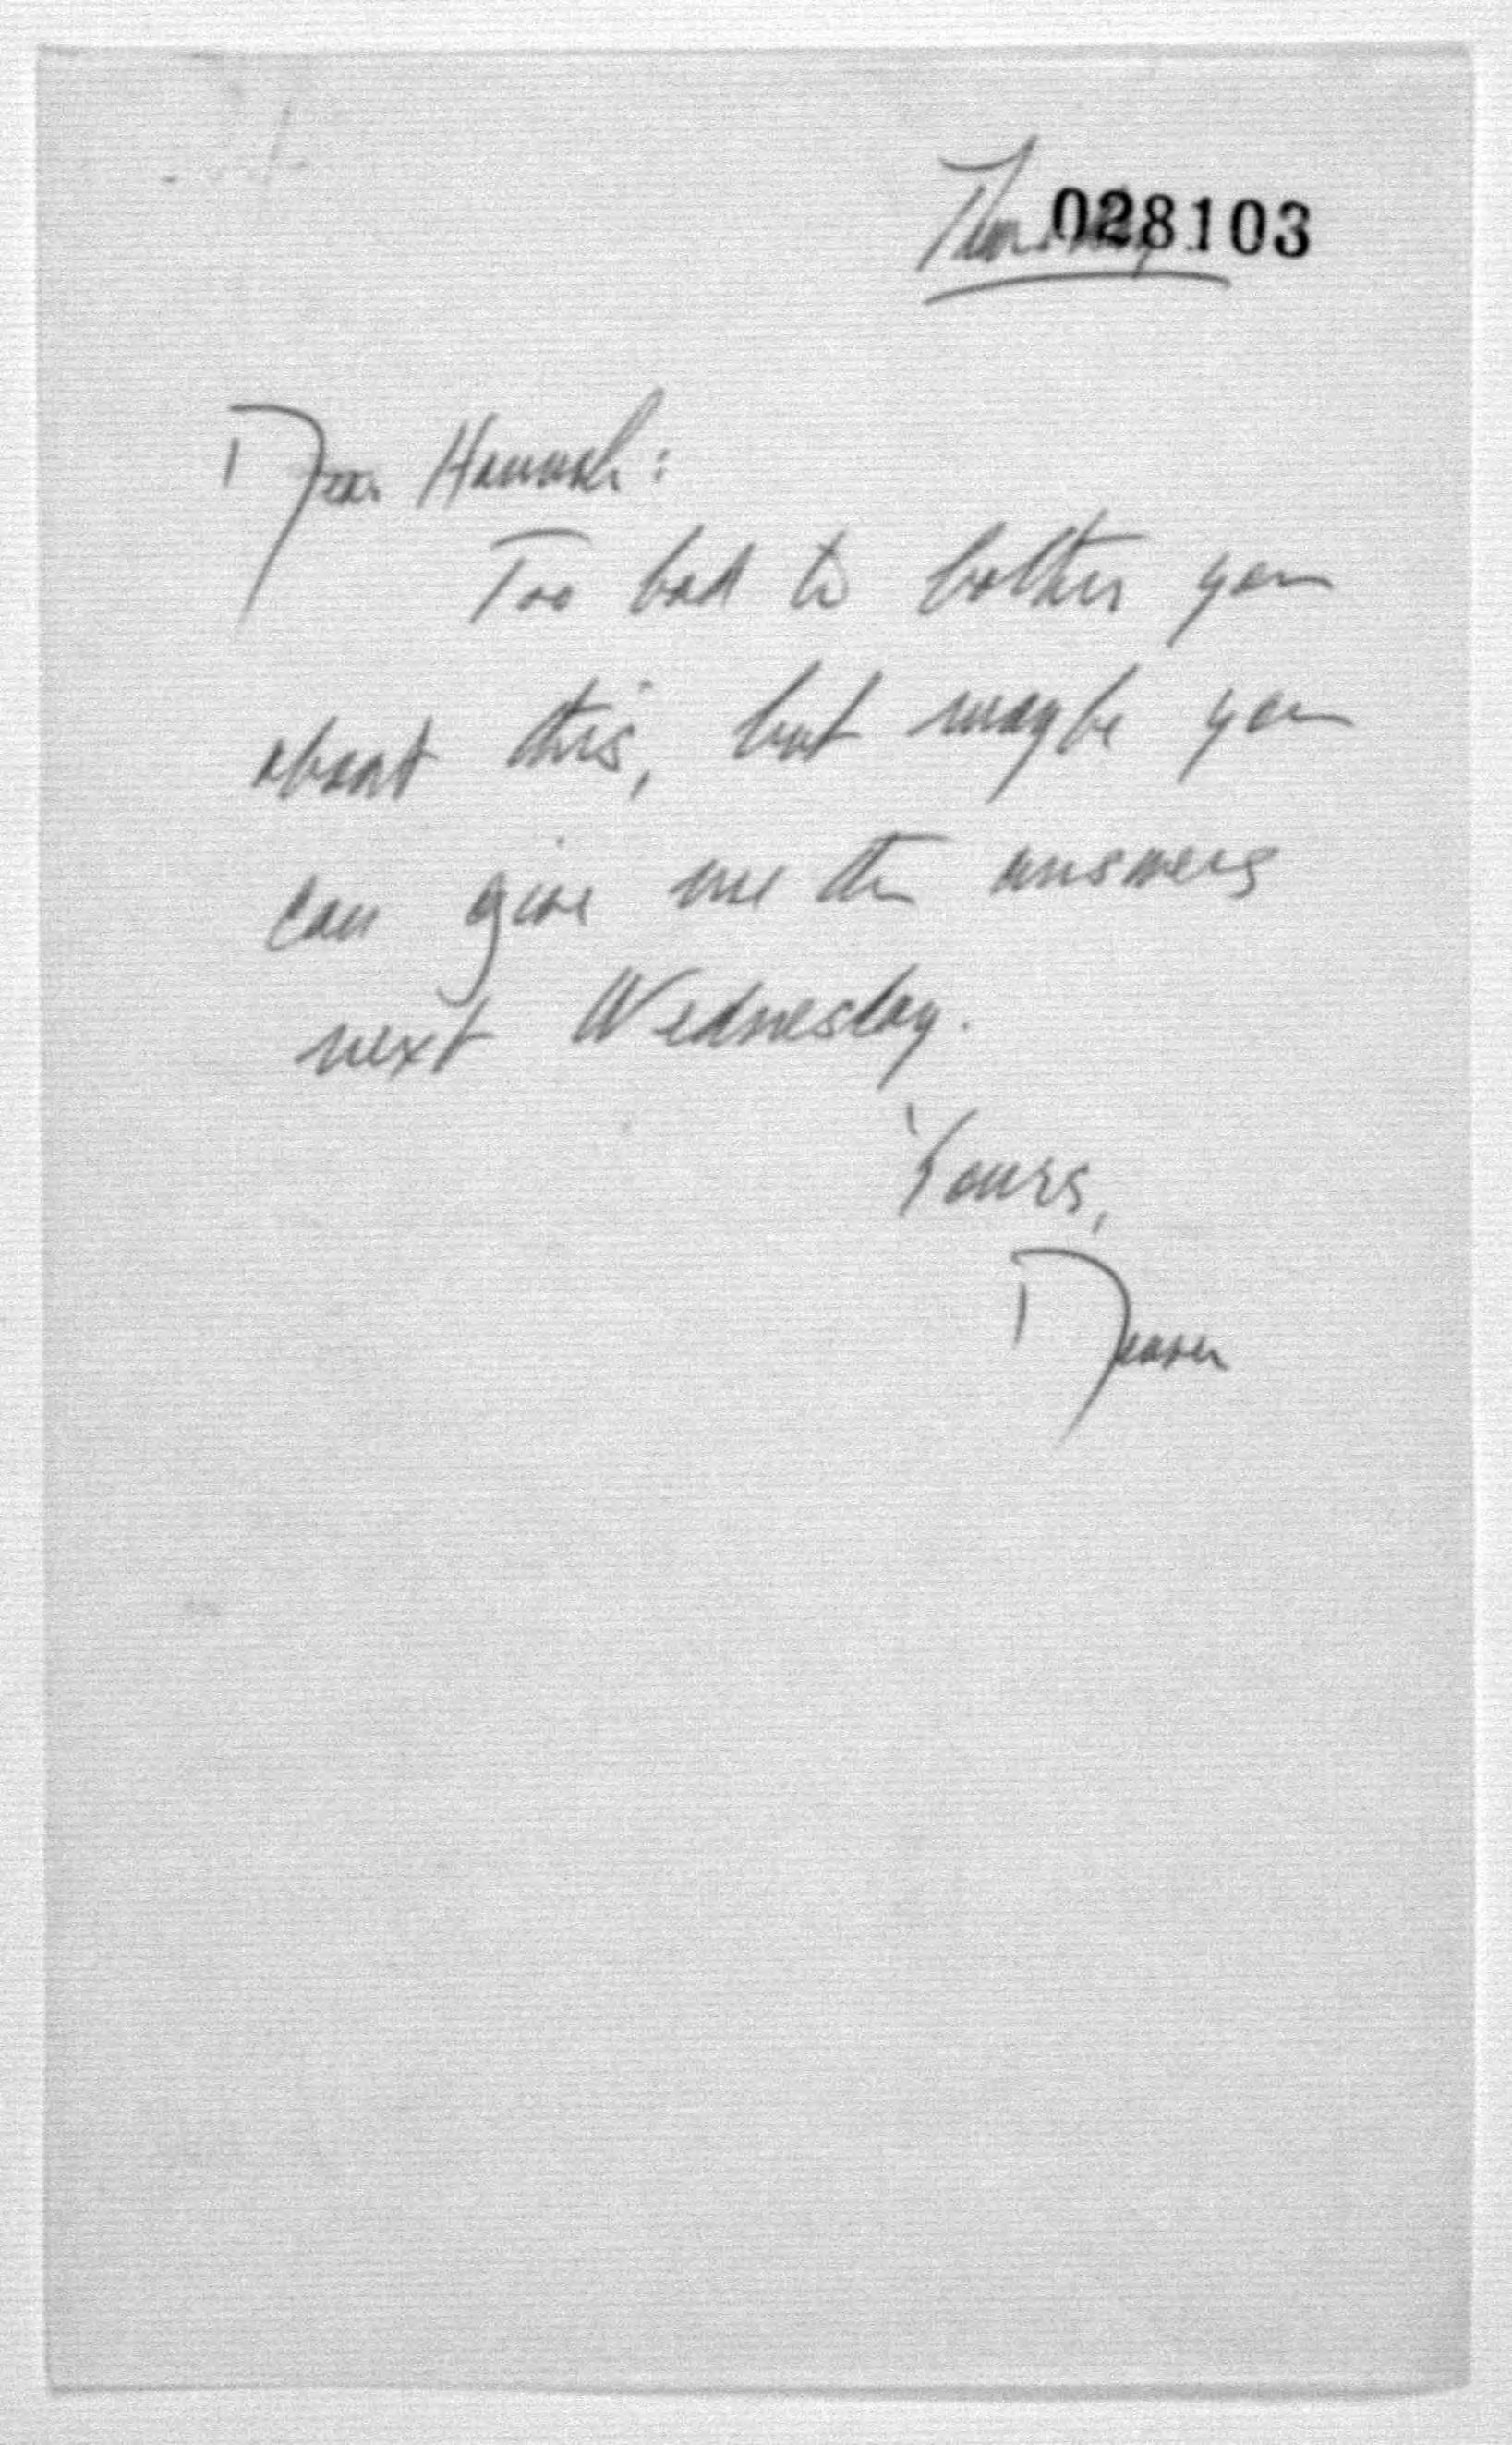 Thursday
028103
Dear Hannah:
Too bad to bother you
about this, but maybe you
can give me the answers
next Wednesday.
Yours,